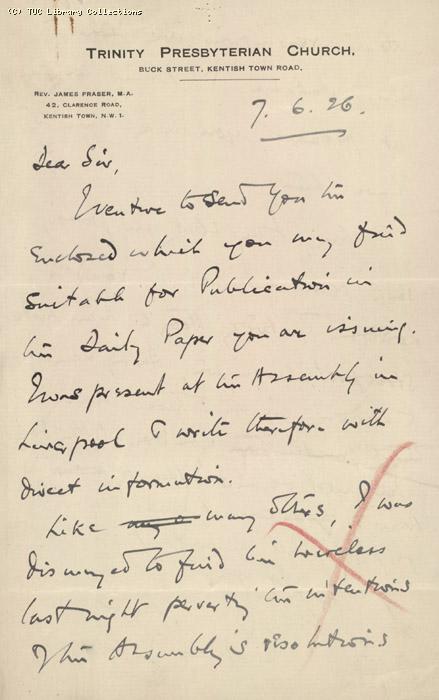 (C) TUC Library Collections
TRINITY PRESBYTERIAN CHURCH,
BUCK STREET, KENTISH TOWN ROAD.
REV. JAMES FRASER, M.A.
42, CLARENCE ROAD,
KENTISH TOWN, N.W.1.
7. 6. 26.
Dear Sir,
I venture to send you the
enclosed which you may find
suitable for Publication in
the Daily Paper you are issuing.
I was present at the Assembly in
Liverpool & write therefore with
direct information.
Like many others, I was
dismayed to find the wireless
last night perverting the intentions
of the Assembly's resolutions